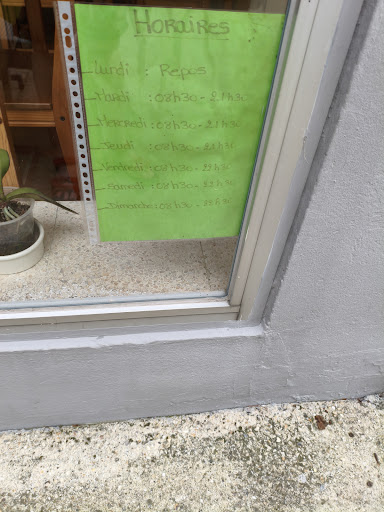 Horaires
Lundi : Repos
Mardi : 08h30 - 21h30
Mercredi : 08h30 - 21h30
Jeudi : 08h30 - 21h30
Vendredi : 08h30 - 22h30
Samedi : 08h30 - 22h30
Dimanche : 08h30 -